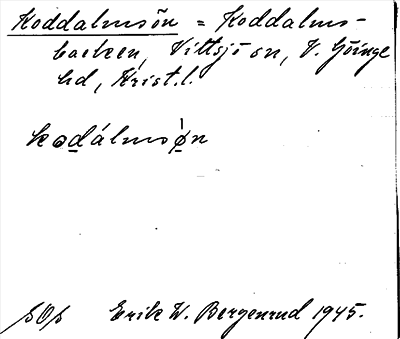 Koddalmsön = Koddalms-
backen, Vittsjö sn, V. Göinge
hd, Krist. l.
kodálmsø̀n
SOs Erik W. Bergenrud 1945.